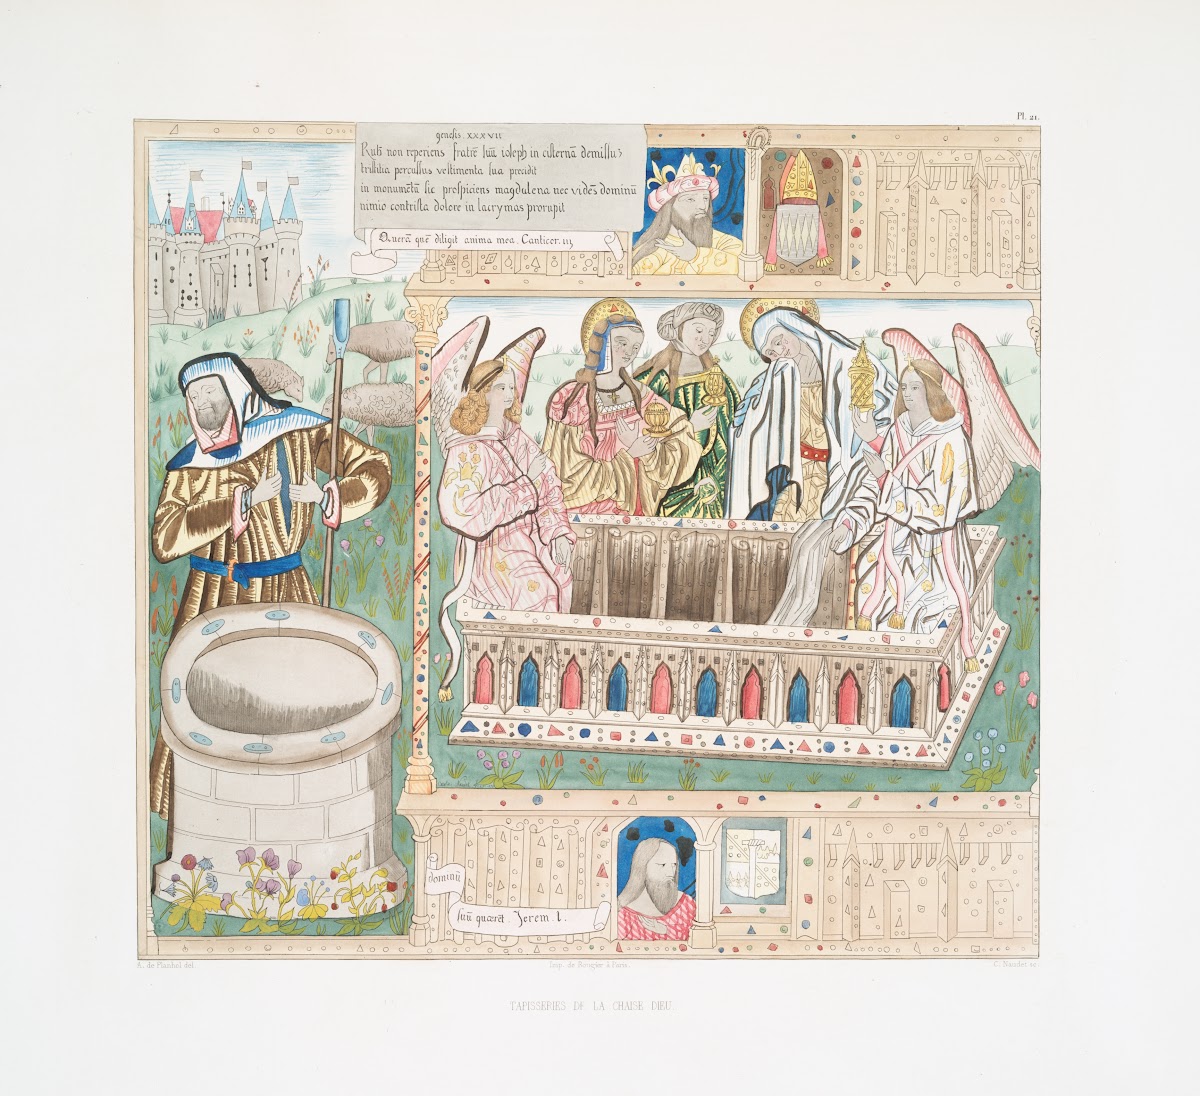 Pl. 21.
genesis. xxxvii
Rubē non reperiens fratrē suū ioseph in cisternā demissū
tristitia percussus vestimenta sua precidit
in monumētū sic prospiciens magdalena nec vidēs dominū
nimio contrista dolore in lacrymas prorupit
Querā quē diligit anima mea. Canticor. iij
dominū
suū queret. Jerem. l.
A. de Planhol del.
Imp. de Rougier à Paris.
C. Naudet sc.
TAPISSERIES DE LA CHAISE DIEU.